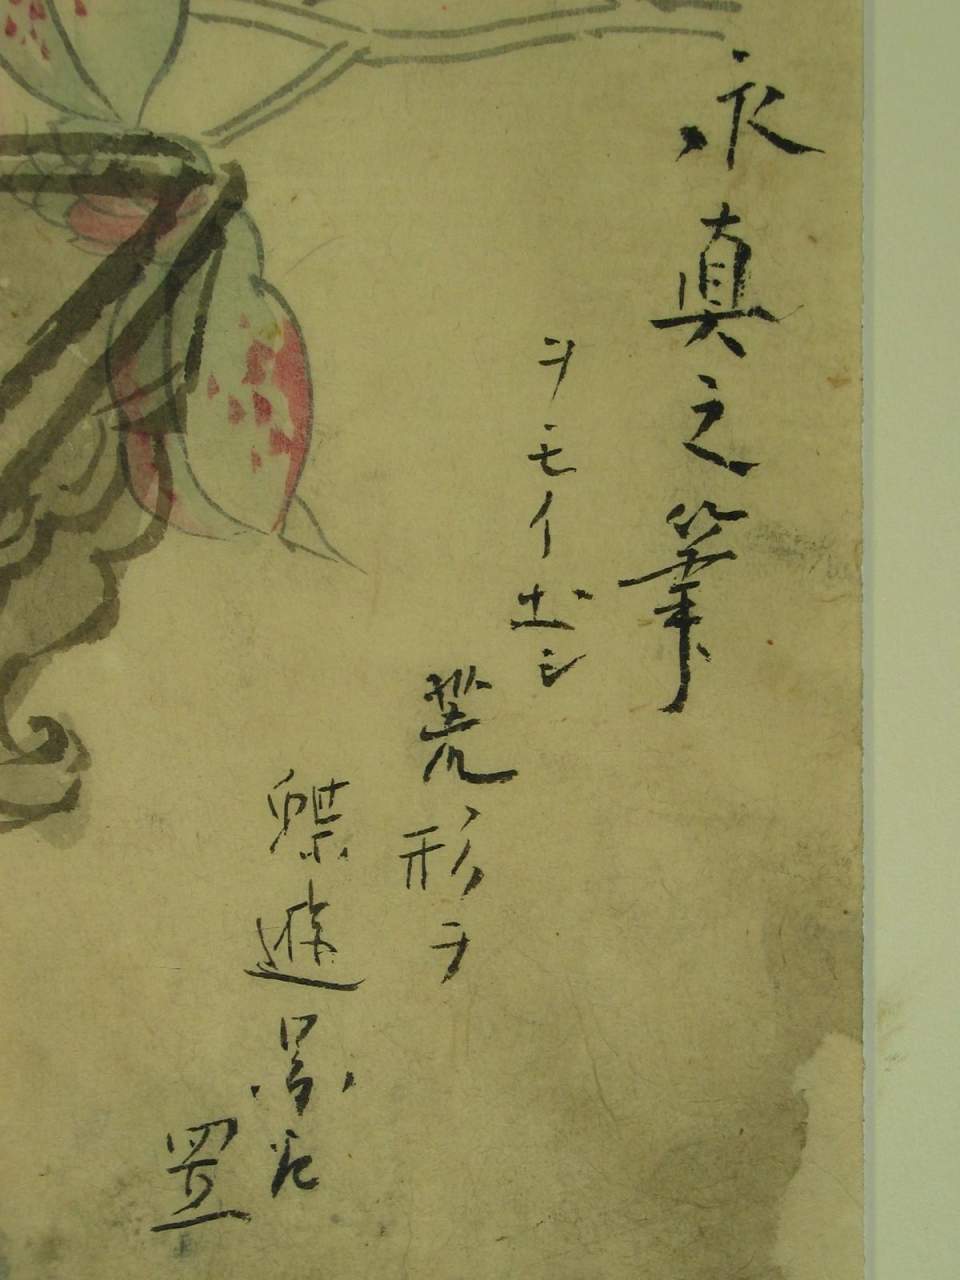 永真之筆
ヲモイ出シ
荒形ヲ
蝶遊
置